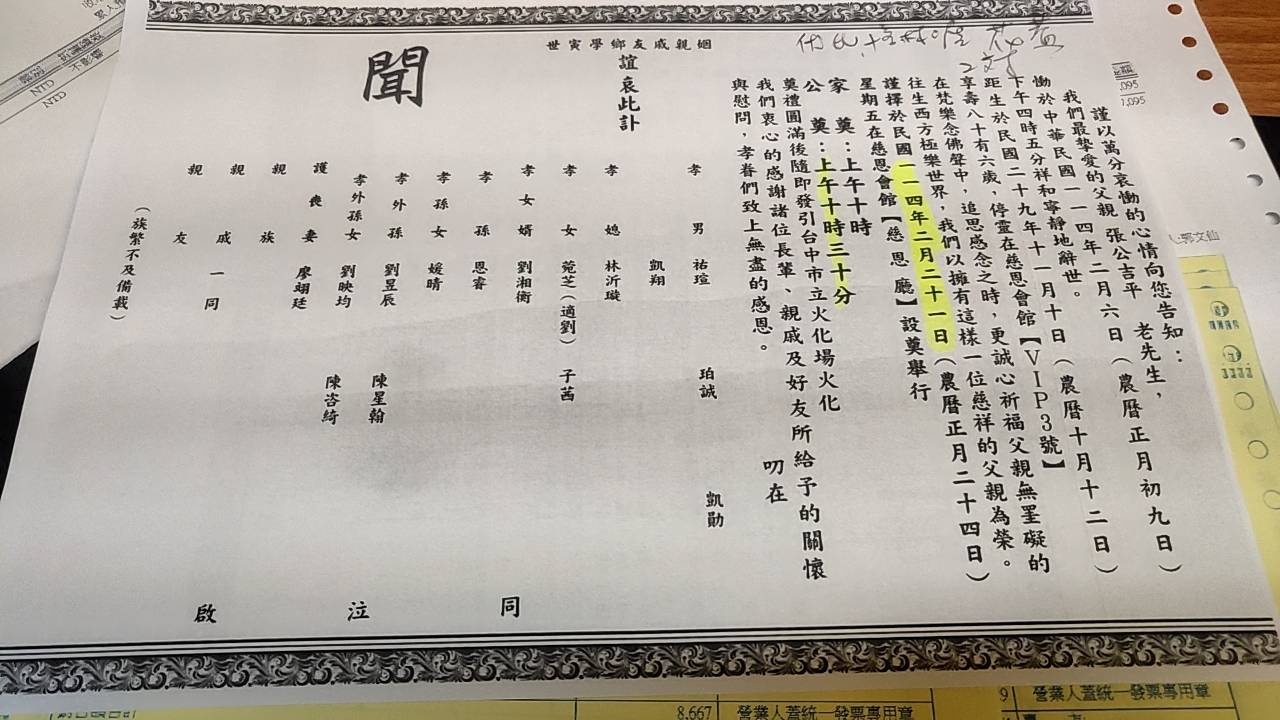 謹以萬分哀慟的心情向您告知：
我們最摯愛的父親 張公吉平　老先生，
慟於中華民國一一四年二月六日（農曆正月初九日）
下午四時五分祥和寧靜地辭世。
距生於民國二十九年十一月十日（農曆十月十二日）
享壽八十有六歲，停靈在慈恩會館【VIP3號】
在梵樂念佛聲中，追思感念之時，更誠心祈福父親無罣礙的
往生西方極樂世界，我們以擁有這樣一位慈祥的父親為榮。
謹擇於民國一一四年二月二十一日（農曆正月二十四日）
星期五在慈恩會館【慈恩廳】設奠舉行
家　奠：上午十時
公　奠：上午十時三十分
奠禮圓滿後隨即發引台中市立火化場火化
我們衷心的感謝諸位長輩、親戚及好友所給予的關懷
與慰問，孝眷們致上無盡的感恩。
叨在
姻親戚友鄉學寅世
誼哀此訃
聞
孝男　祐瑄　珀誠　凱勛
凱翔
孝媳　林沂璇
孝女　菀芝（適劉）　子茜
孝女婿　劉湘衡
孝孫　恩睿
孝孫女　媛晴
孝外孫　劉昱辰　陳星翰
孝外孫女　劉映均　陳咨綺
護喪妻　廖翃廷
親族
親戚一同
親友
（族繁不及備載）
同泣啟
NTD
NTD
,095
1,095
郭文仙
8,667
營業人蓋統一發票專用章
9
營業人蓋統一發票專用章